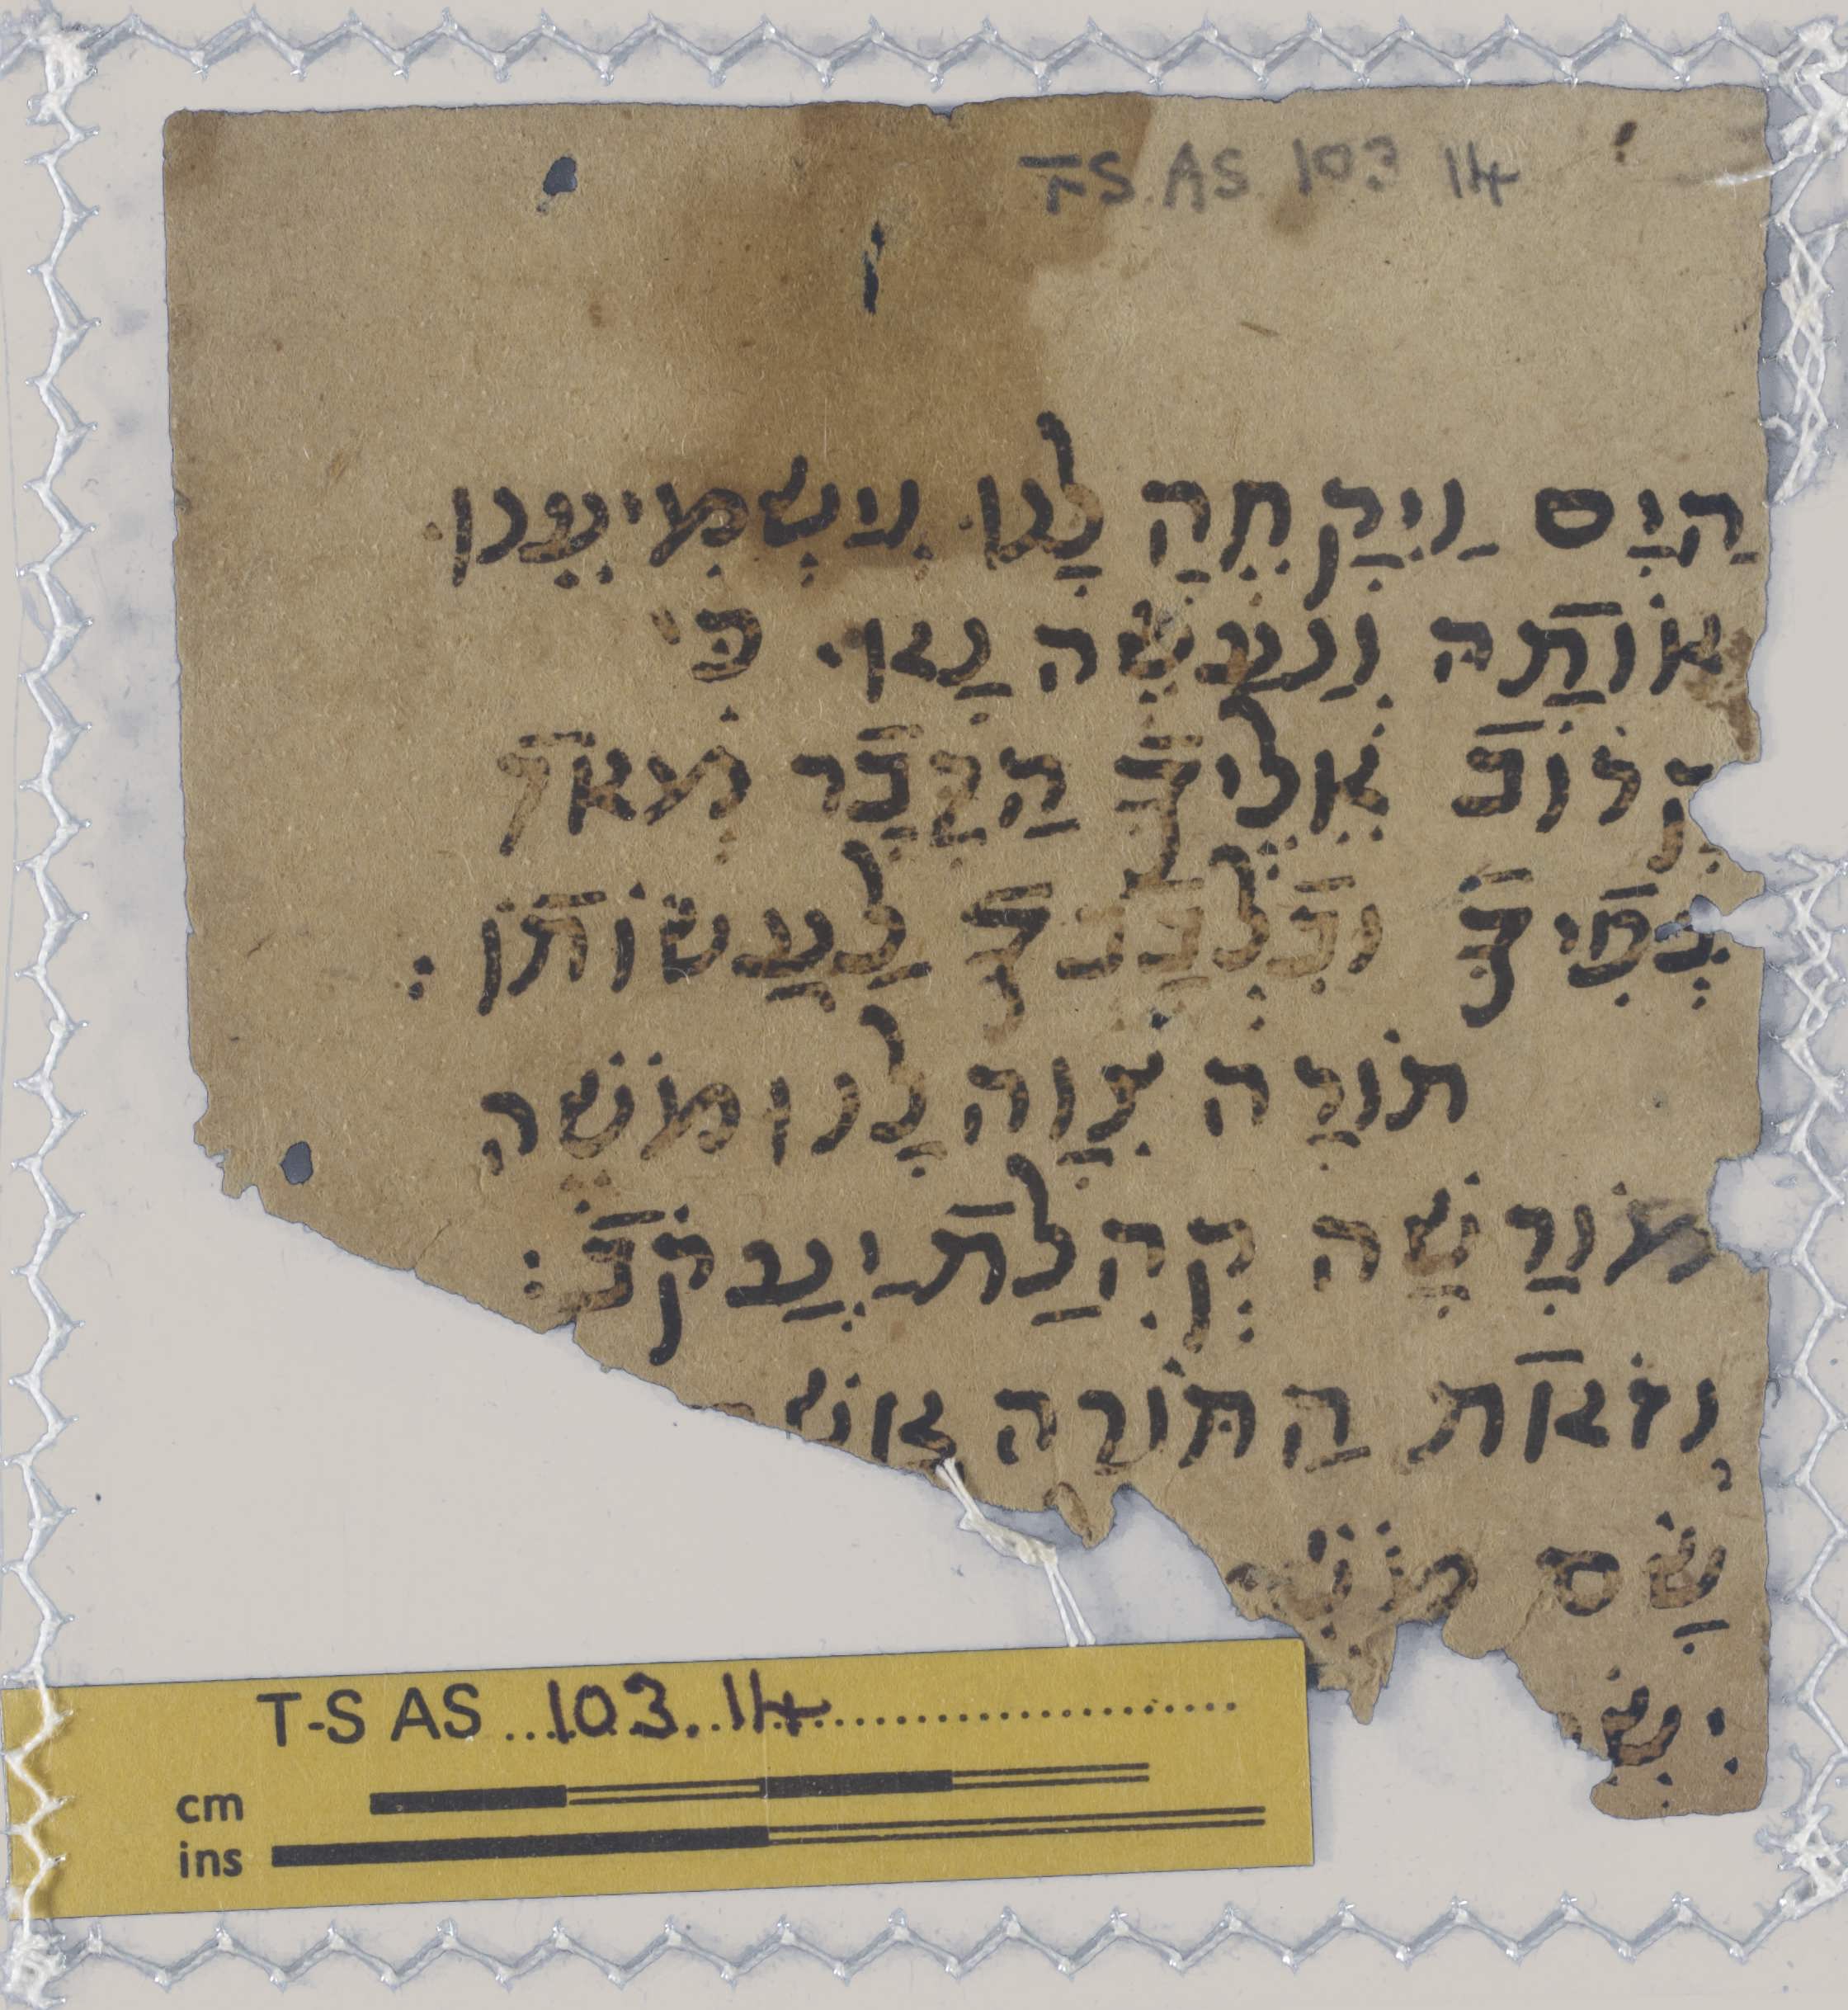 TS AS 103 14
הַיָּם וַיִקָחֶהָ לָנוּ. וְיִשְמִיעֵנוּ.
אוֹתָה וְנַעֲשֶׂה נָא. כִּי
קָרוֹב אֵלֶיךָ הַדָבָר מְאֹד
בְּפִיךָ וּבִלְבָבְךָ לַעֲשׂוֹתוֹ:
תוֹרָה צִוָה לָנוּ מֹשֶׁה
מוֹרָשָׁה קְהִלַת יַעֲקֹב:
וְזֹאת הַתּוֹרָה אש
שָׂם משה
יִשְׂ
T-S AS 103.14
cm
ins